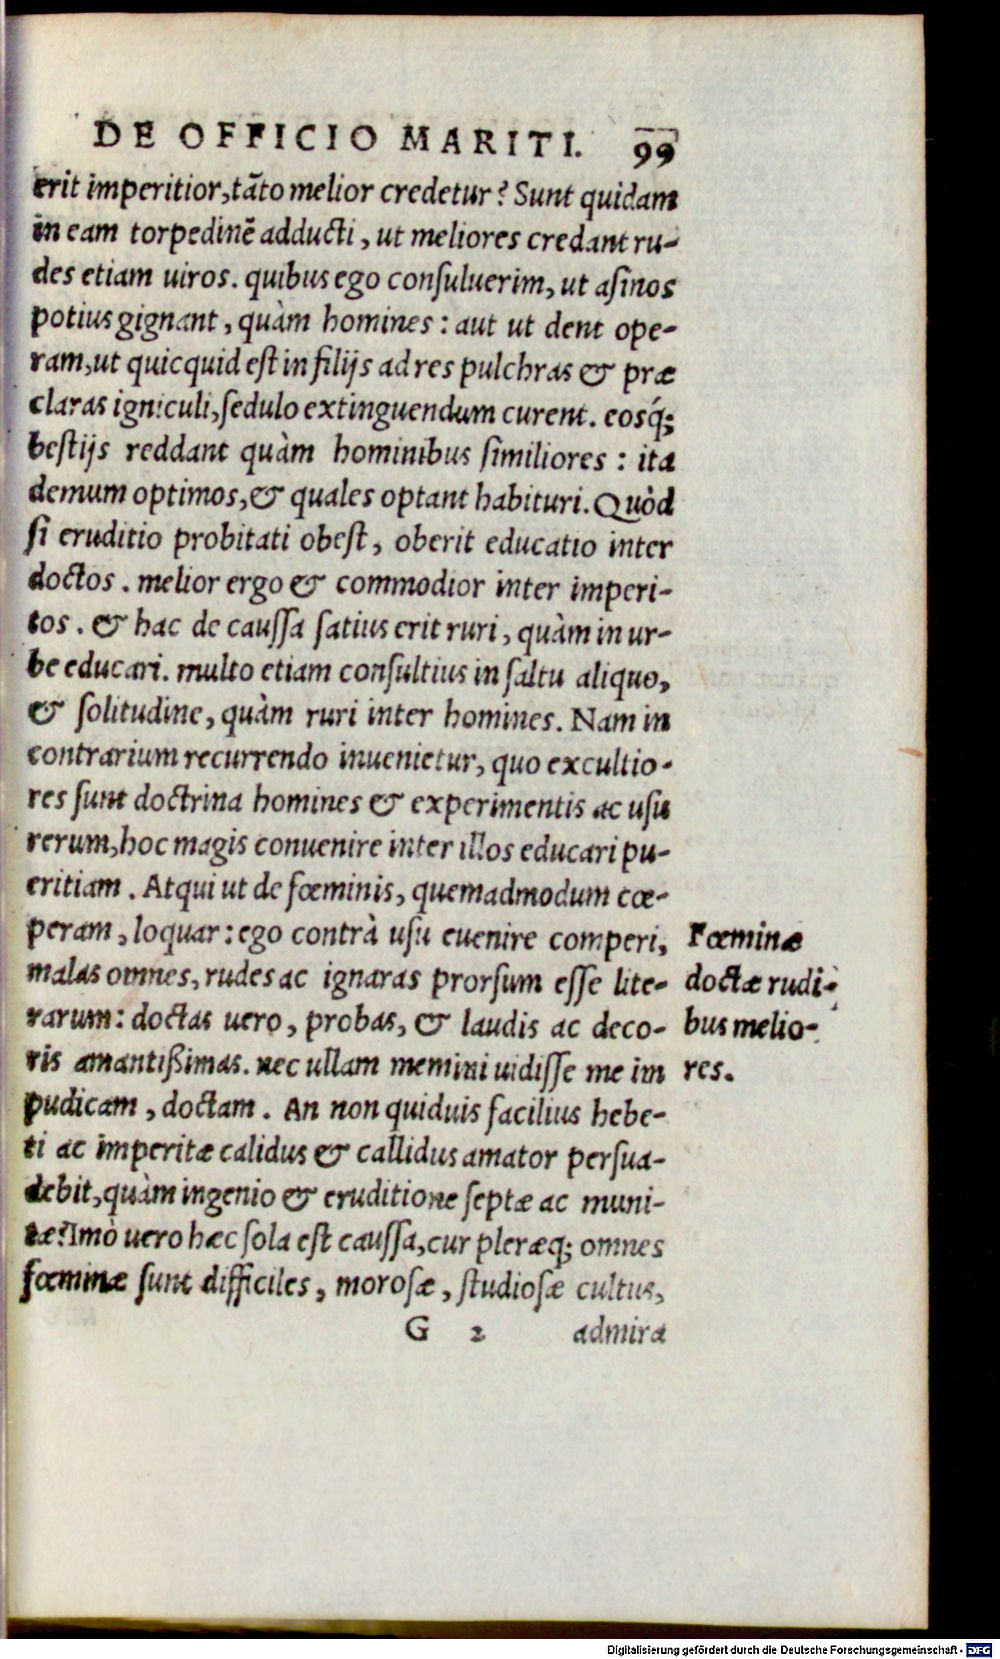 DE OFFICIO MARITI. 99
erit imperitior, tāto melior credetur? Sunt quidam
in eam torpedinē adducti, ut meliores credant ru-
des etiam uiros. quibus ego consuluerim, ut asinos
potius gignant, quàm homines: aut ut dent ope-
ram, ut quicquid est in filijs ad res pulchras & præ
claras igniculi, sedulo extinguendum curent. eosq́;
bestijs reddant quàm hominibus similiores: ita
demum optimos, & quales optant habituri. Quòd
si eruditio probitati obest, oberit educatio inter
doctos. melior ergo & commodior inter imperi-
tos. & hac de caussa satius erit ruri, quàm in ur-
be educari. multo etiam consultius in saltu aliquo,
& solitudine, quàm ruri inter homines. Nam in
contrarium recurrendo inuenietur, quo excultio-
res sunt doctrina homines & experimentis ac usu
rerum, hoc magis conuenire inter illos educari pu-
eritiam. Atqui ut de fœminis, quemadmodum cœ-
peram, loquar: ego contrà usu euenire comperi,
malas omnes, rudes ac ignaras prorsum esse lite-
rarum: doctas uero, probas, & laudis ac deco-
ris amantißimas. nec ullam memini uidisse me im
pudicam, doctam. An non quiduis facilius hebe-
ti ac imperitæ calidus & callidus amator persua-
debit, quàm ingenio & eruditione septæ ac muni-
tæ? Imò uero hæc sola est caussa, cur pleræq; omnes
fœminæ sunt difficiles, morosæ, studiosæ cultus,
G 2 admira
Fœminæ
doctæ rudi-
bus melio-
res.
Digitalisierung gefördert durch die Deutsche Forschungsgemeinschaft - DFG